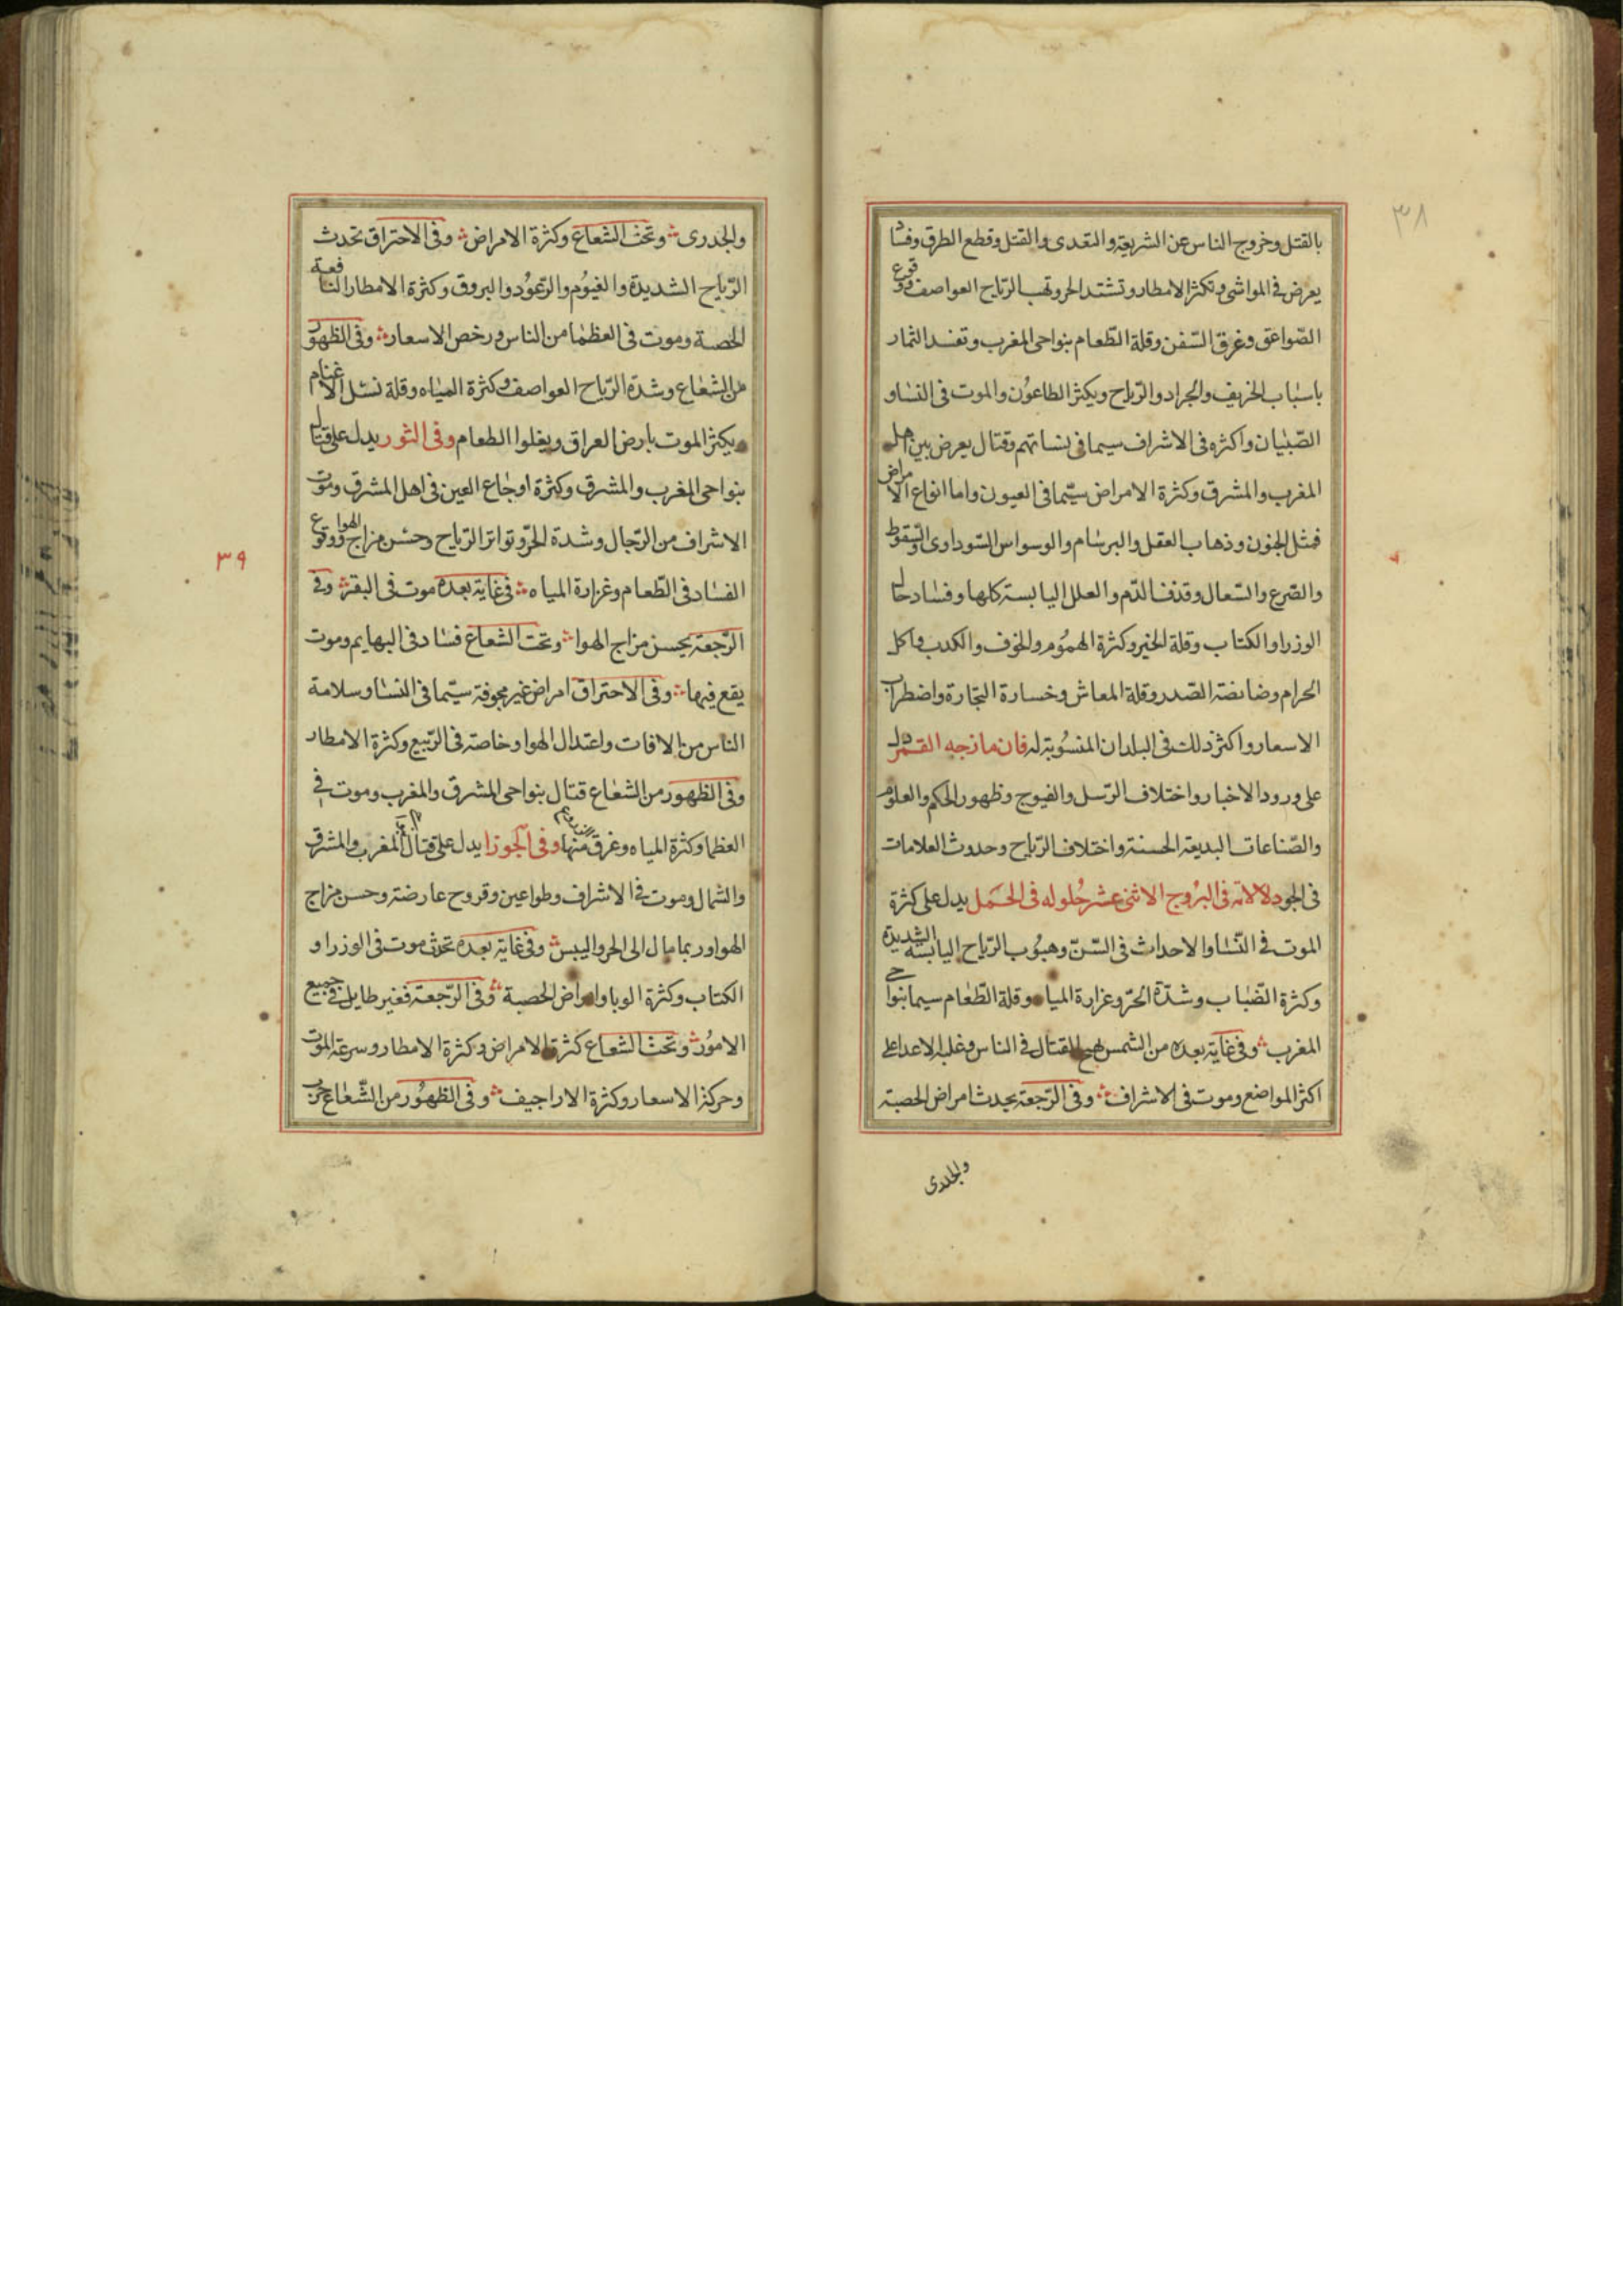 ٣٨
بالقتل وخروج الناس عن الشريعة والتعدى والقتل وقطع الطرق وفساد
يعرض فى المواشى وتكثر الامطار وتشتد الحر وتهب الرياح العواصف ووقوع
الصّواعق وغرق السّفن وقلة الطّعام بنواحى المغرب وتفسد الثمار
باسباب الخريف والجراد والرّياح ويكثر الطاعُون والموت فى النساو
الصّبيان واكثره فى الاشراف سيما فى نسائهم وقتال يعرض بين اهل
المغرب والمشرق وكثرة الامراض سيّما فى العيون واما انواع الامراض
فمثل الجنون وذهاب العقل والبرسام والوسواس السّوداوى والسّقوط
والصّرع والسّعال وقذف الدّم والعلل اليابسة كلها وفساد حال
الوزرا والكتاب وقلة الخير وكثرة الهمُوم والخوف والكدب واكل
الحرام وضايقة الصّدر وقلة المعاش وخسارة التجارة واضطراب
الاسعار واكثر ذلك فى البلدان المنسُوبة له فان مازجه القمر دل
على ورود الاخبار واختلاف الرّسل والفيوج وظهور الحكم والعلوم
والصّناعات البديعة الحسنة واختلاف الرّياح وحدوث العلامات
فى الجو دلالاته فى البرُوج الاثنى عشر حُلوله فى الحَمل يدل على كثرة
الموت فى النّسا والاحداث فى السّنّ وهبُوب الرّياح اليابسة الشديدة
وكثرة الضّباب وشدّة الحَرّ وغزارة المياه وقلة الطّعام سيما بنواحى
المغرب وفى غاية بعده من الشمس يهيج القتال فى الناس وغلبة الاعدا على
اكثر المواضع وموت فى الاشراف وفى الرّجعة يحدث امراض الحصبة
والجدرى
٣٩
والجدرى وتحت الشعاع وكثرة الامراض وفى الاحتراق تحدث
الرّياح الشديدة والغيُوم والرّعوُد والبروق وكثرة الامطار النافعة
الخصبة وموت فى العظما من الناس ورخص الاسعار وفى الظهور
من الشعاع وشدّة الرّياح العواصف وكثرة المياه وقلة نسل الاغنام
ويكثر الموت بارض العراق ويغلوا الطعام وفى الثور يدل على قتال
بنواحى المغرب والمشرق وكثرة اوجاع العين فى اهل المشرق وموت
الاشراف من الرّجال وشدة الحرّ وتواتر الرّياح وحسن مزاج الهوا ووقوع
الفساد فى الطّعام وغزارة المياه فى غاية بعده موت فى البقر وفى
الرّجعة يحسن مزاج الهوا وتحت الشعاع فساد فى البهايم وموت
يقع فيها وفى الاحتراق امراض غير مخوفة سيّما فى النسا وسلامة
الناس من الافات واعتدال الهوا وخاصة فى الرّبيع وكثرة الامطار
وفى الظهور من الشعاع قتال بنواحى المشرق والمغرب وموت فى
العظما وكثرة المياه وغرق منها وفى الجوزا يدل على قتال المغرب والمشرق
والشمال وموت فى الاشراف وطواعين وقروح عارضة وحسن مزاج
الهوا وربما مال الى الحر واليبس وفى غاية بعده تحدث موت فى الوزرا و
الكتاب وكثرة الوبا وامراض الحصبة وفى الرّجعة فغير طايل فى جميع
الامُور وتحت الشعاع كثرة الامراض وكثرة الامطار وسرعة الموت
وحركة الاسعار وكثرة الاراجيف وفى الظهُور من الشّعاع